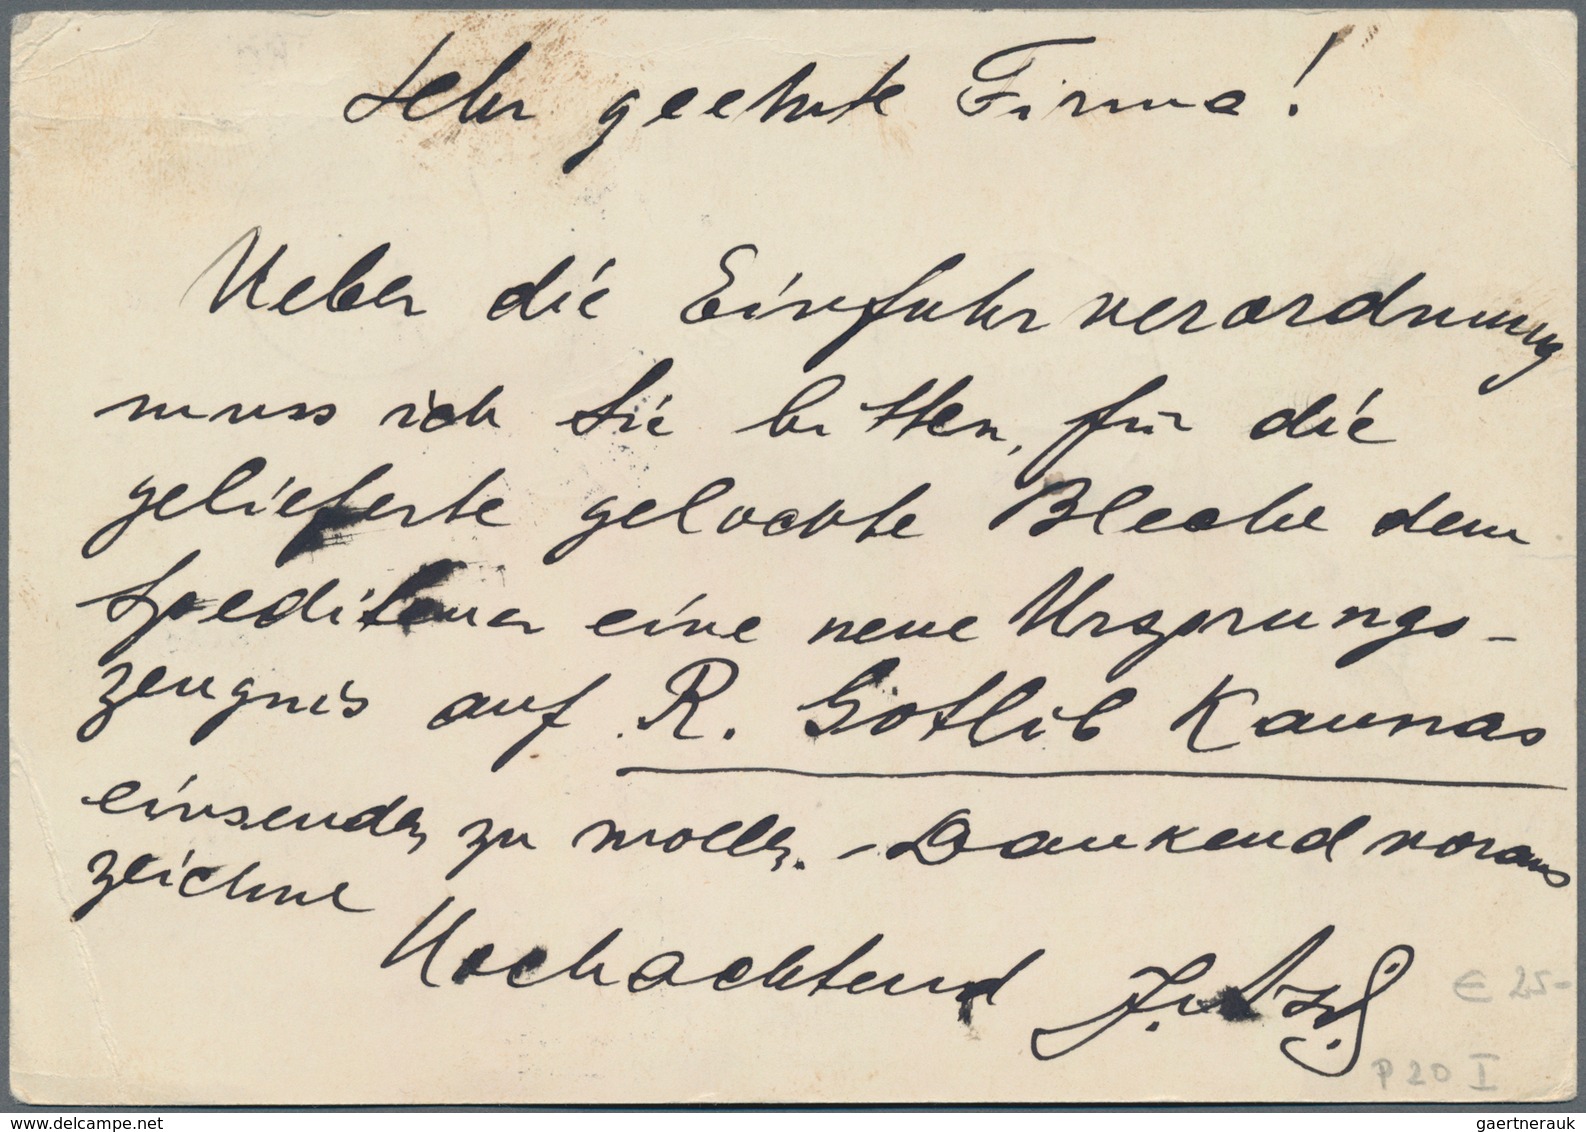 Sehr geehrte Firma!
Ueber die Einfuhrverordnung
muss ich Sie bitten, für die
gelieferte gelochte Bleche dem
Spediteur eine neue Ursprungs-
zeugnis auf R. Gotlib Kaunas
einsenden zu wollen. - Dankend voraus
zeichne
Hochachtend
€ 25-
P 20 I
delcampe.net
gaertnerauk